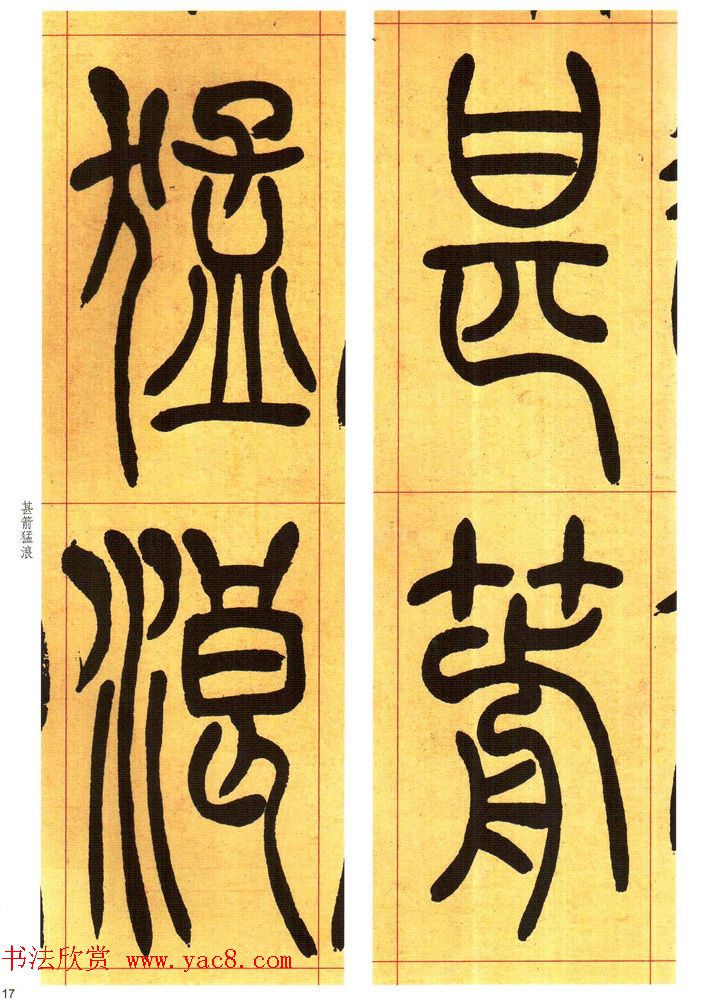 甚
箭
猛
浪
甚箭猛浪
书法欣赏 www.yac8.com
17